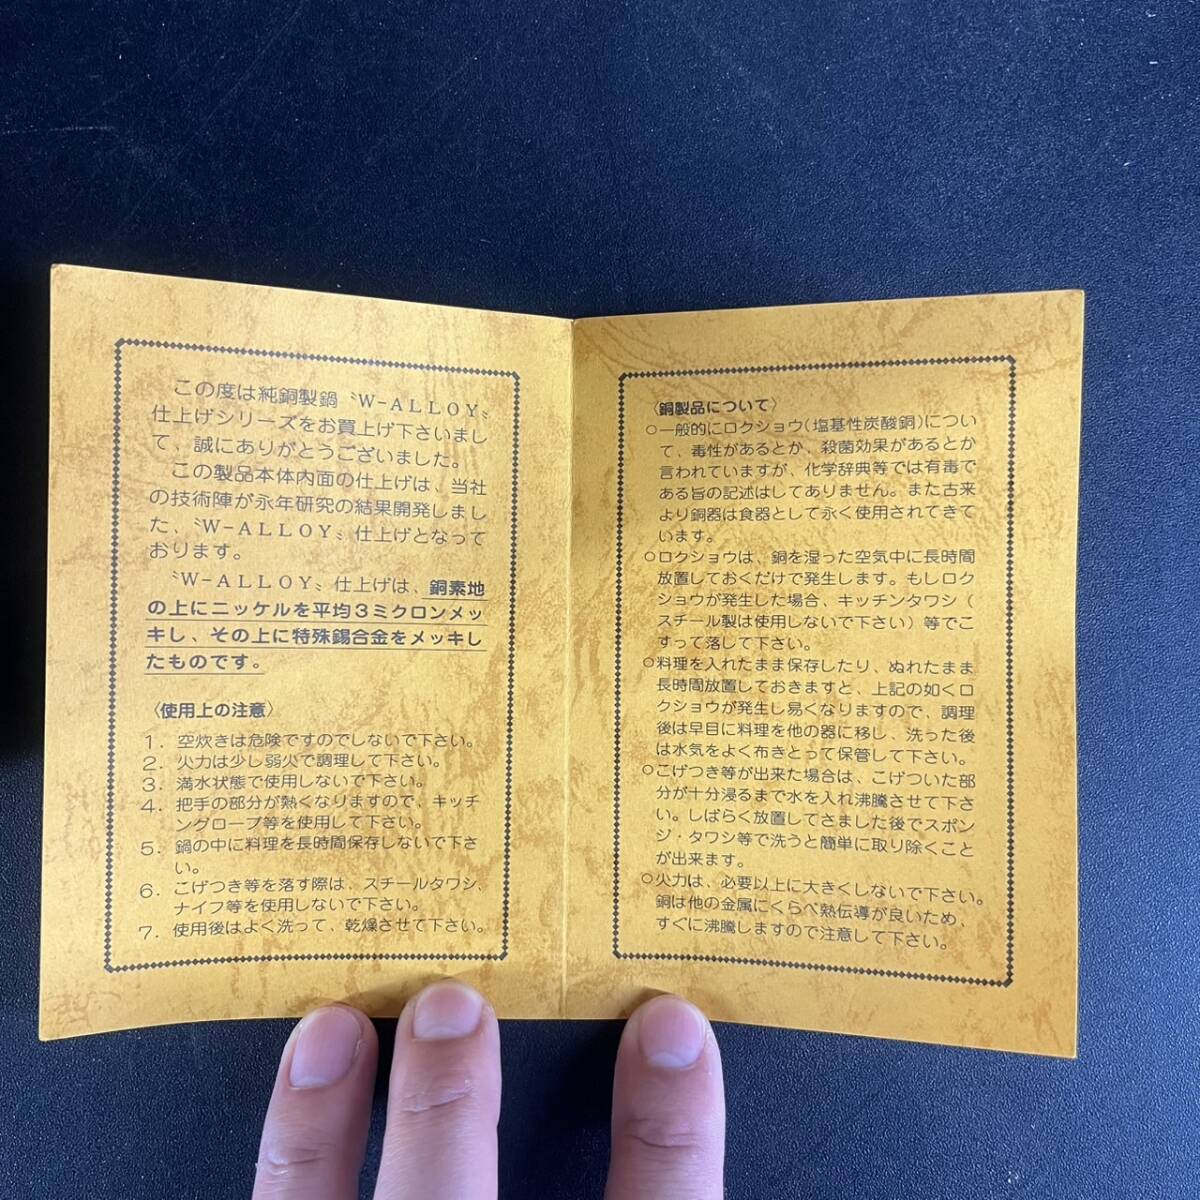 この度は純銅製鍋〝W-ALLOY〟
仕上げシリーズをお買上げ下さいまし
て、誠にありがとうございました。
この製品本体内面の仕上げは、当社
の技術陣が永年研究の結果開発しまし
た、〝W-ALLOY〟仕上げとなって
おります。
〝W-ALLOY〟仕上げは、銅素地
の上にニッケルを平均3ミクロンメッ
キし、その上に特殊錫合金をメッキし
たものです。
〈使用上の注意〉
1. 空炊きは危険ですのでしないで下さい。
2. 火力は少し弱火で調理して下さい。
3. 満水状態で使用しないで下さい。
4. 把手の部分が熱くなりますので、キッチ
ングローブ等を使用して下さい。
5. 鍋の中に料理を長時間保存しないで下さ
い。
6. こげつき等を落す際は、スチールタワシ、
ナイフ等を使用しないで下さい。
7. 使用後はよく洗って、乾燥させて下さい。
〈銅製品について〉
○一般的にロクショウ(塩基性炭酸銅)につい
て、毒性があるとか、殺菌効果があるとか
言われていますが、化学辞典等では有毒で
ある旨の記述はしてありません。また古来
より銅器は食器として永く使用されてきて
います。
○ロクショウは、銅を湿った空気中に長時間
放置しておくだけで発生します。もしロク
ショウが発生した場合、キッチンタワシ(
スチール製は使用しないで下さい)等でこ
すって落して下さい。
○料理を入れたまま保存したり、ぬれたまま
長時間放置しておきますと、上記の如くロ
クショウが発生し易くなりますので、調理
後は早目に料理を他の器に移し、洗った後
は水気をよく布きとって保管して下さい。
○こげつき等が出来た場合は、こげついた部
分が十分浸るまで水を入れ沸騰させて下さ
い。しばらく放置してさました後でスポン
ジ・タワシ等で洗うと簡単に取り除くこと
が出来ます。
○火力は、必要以上に大きくしないで下さい。
銅は他の金属にくらべ熱伝導が良いため、
すぐに沸騰しますので注意して下さい。